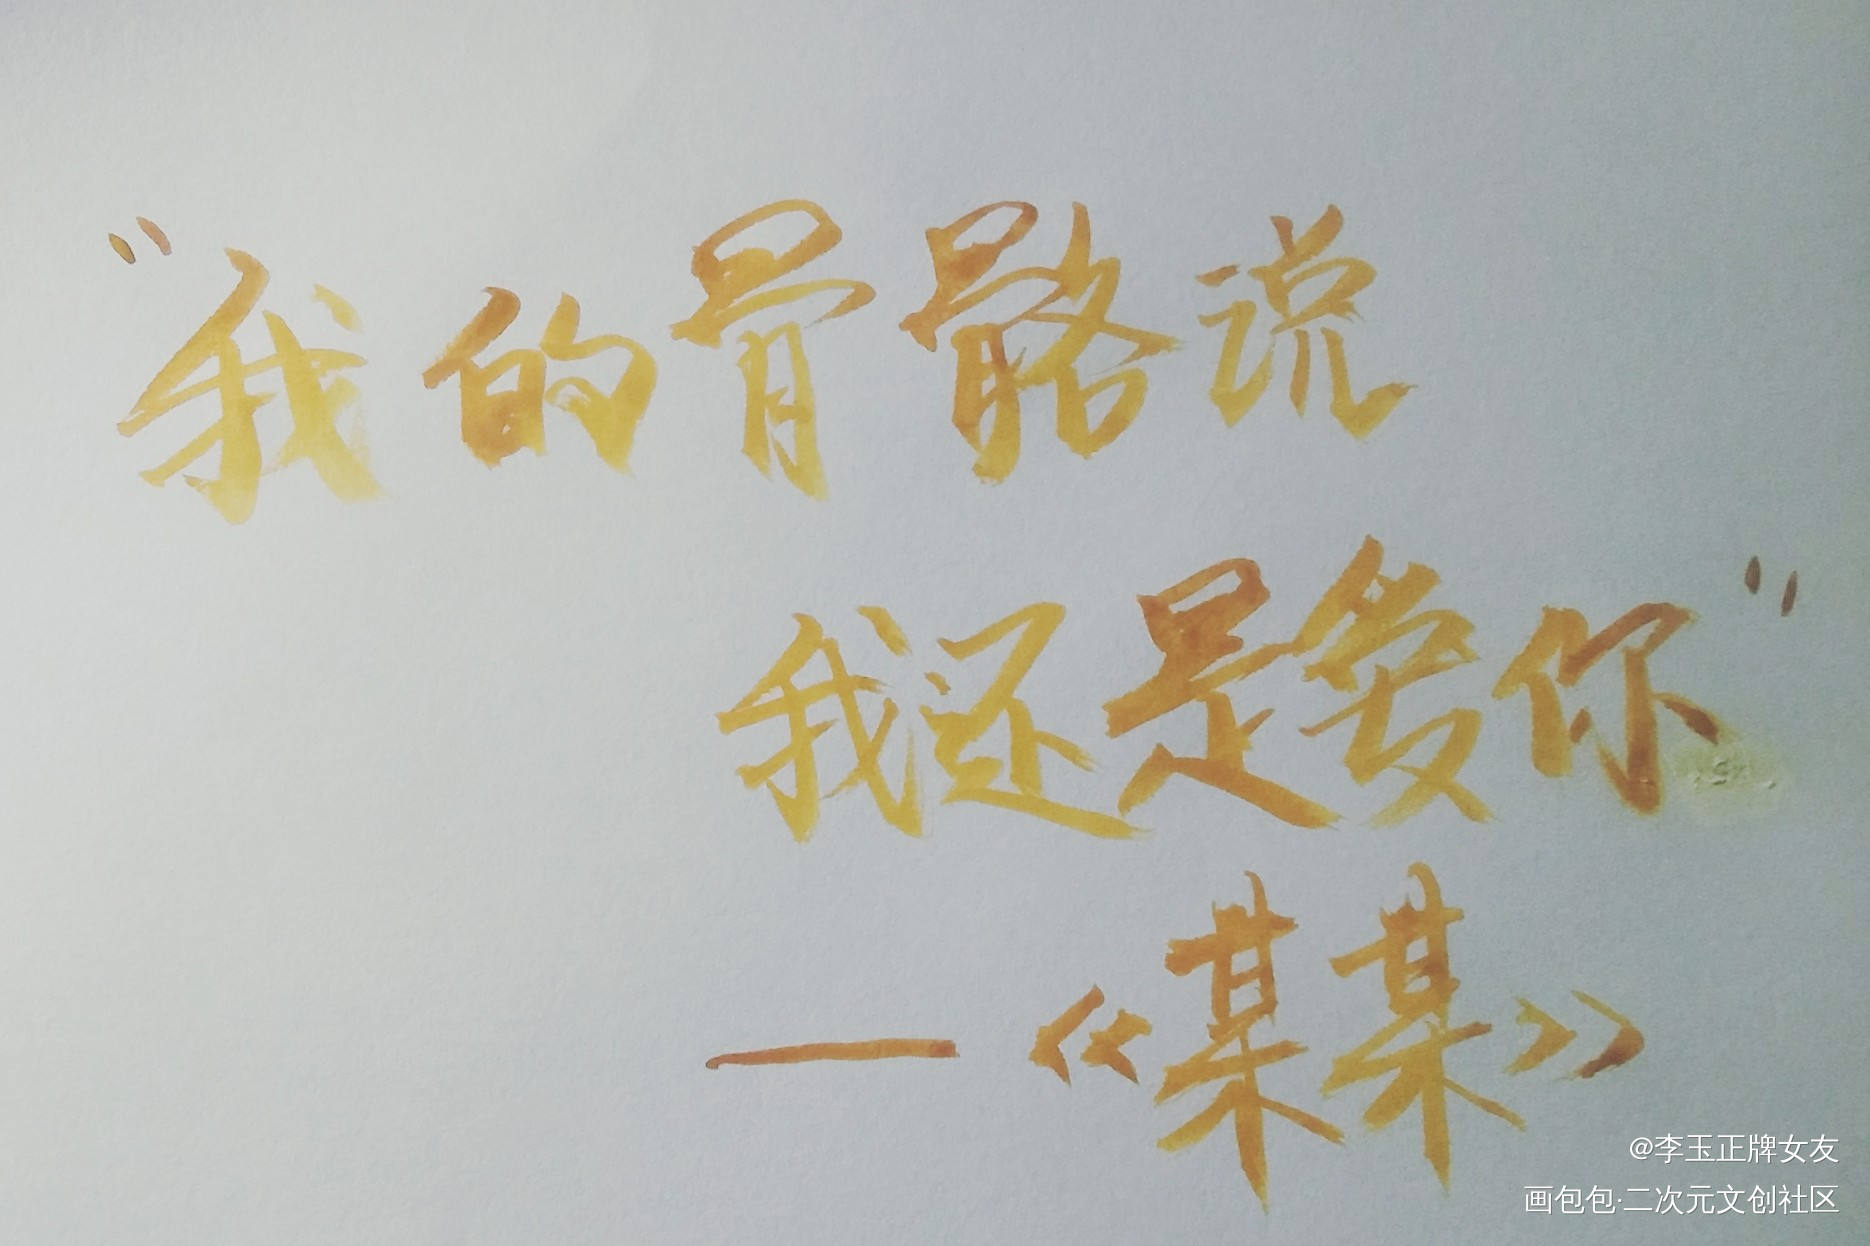 “我的骨骼说
我还是爱你”
—《某某》
@李玉正牌女友
画包包·二次元文创社区